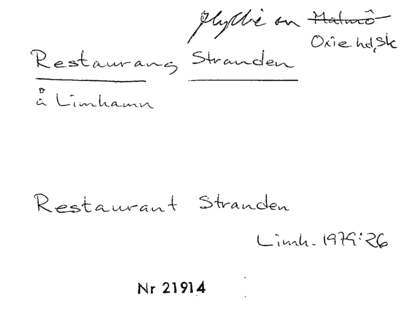 Hyllie sn Malmö
Oxie hd, Sk
Restaurang Stranden
å Limhamn
Restaurant Stranden
Limh. 1979:26
Nr 21914